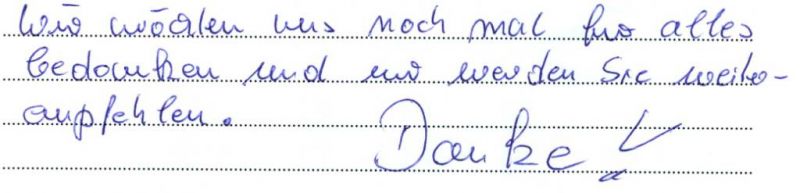 Wir möchten uns noch mal für alles
bedanken und wir werden Sie weiter-
empfehlen.
Danke!